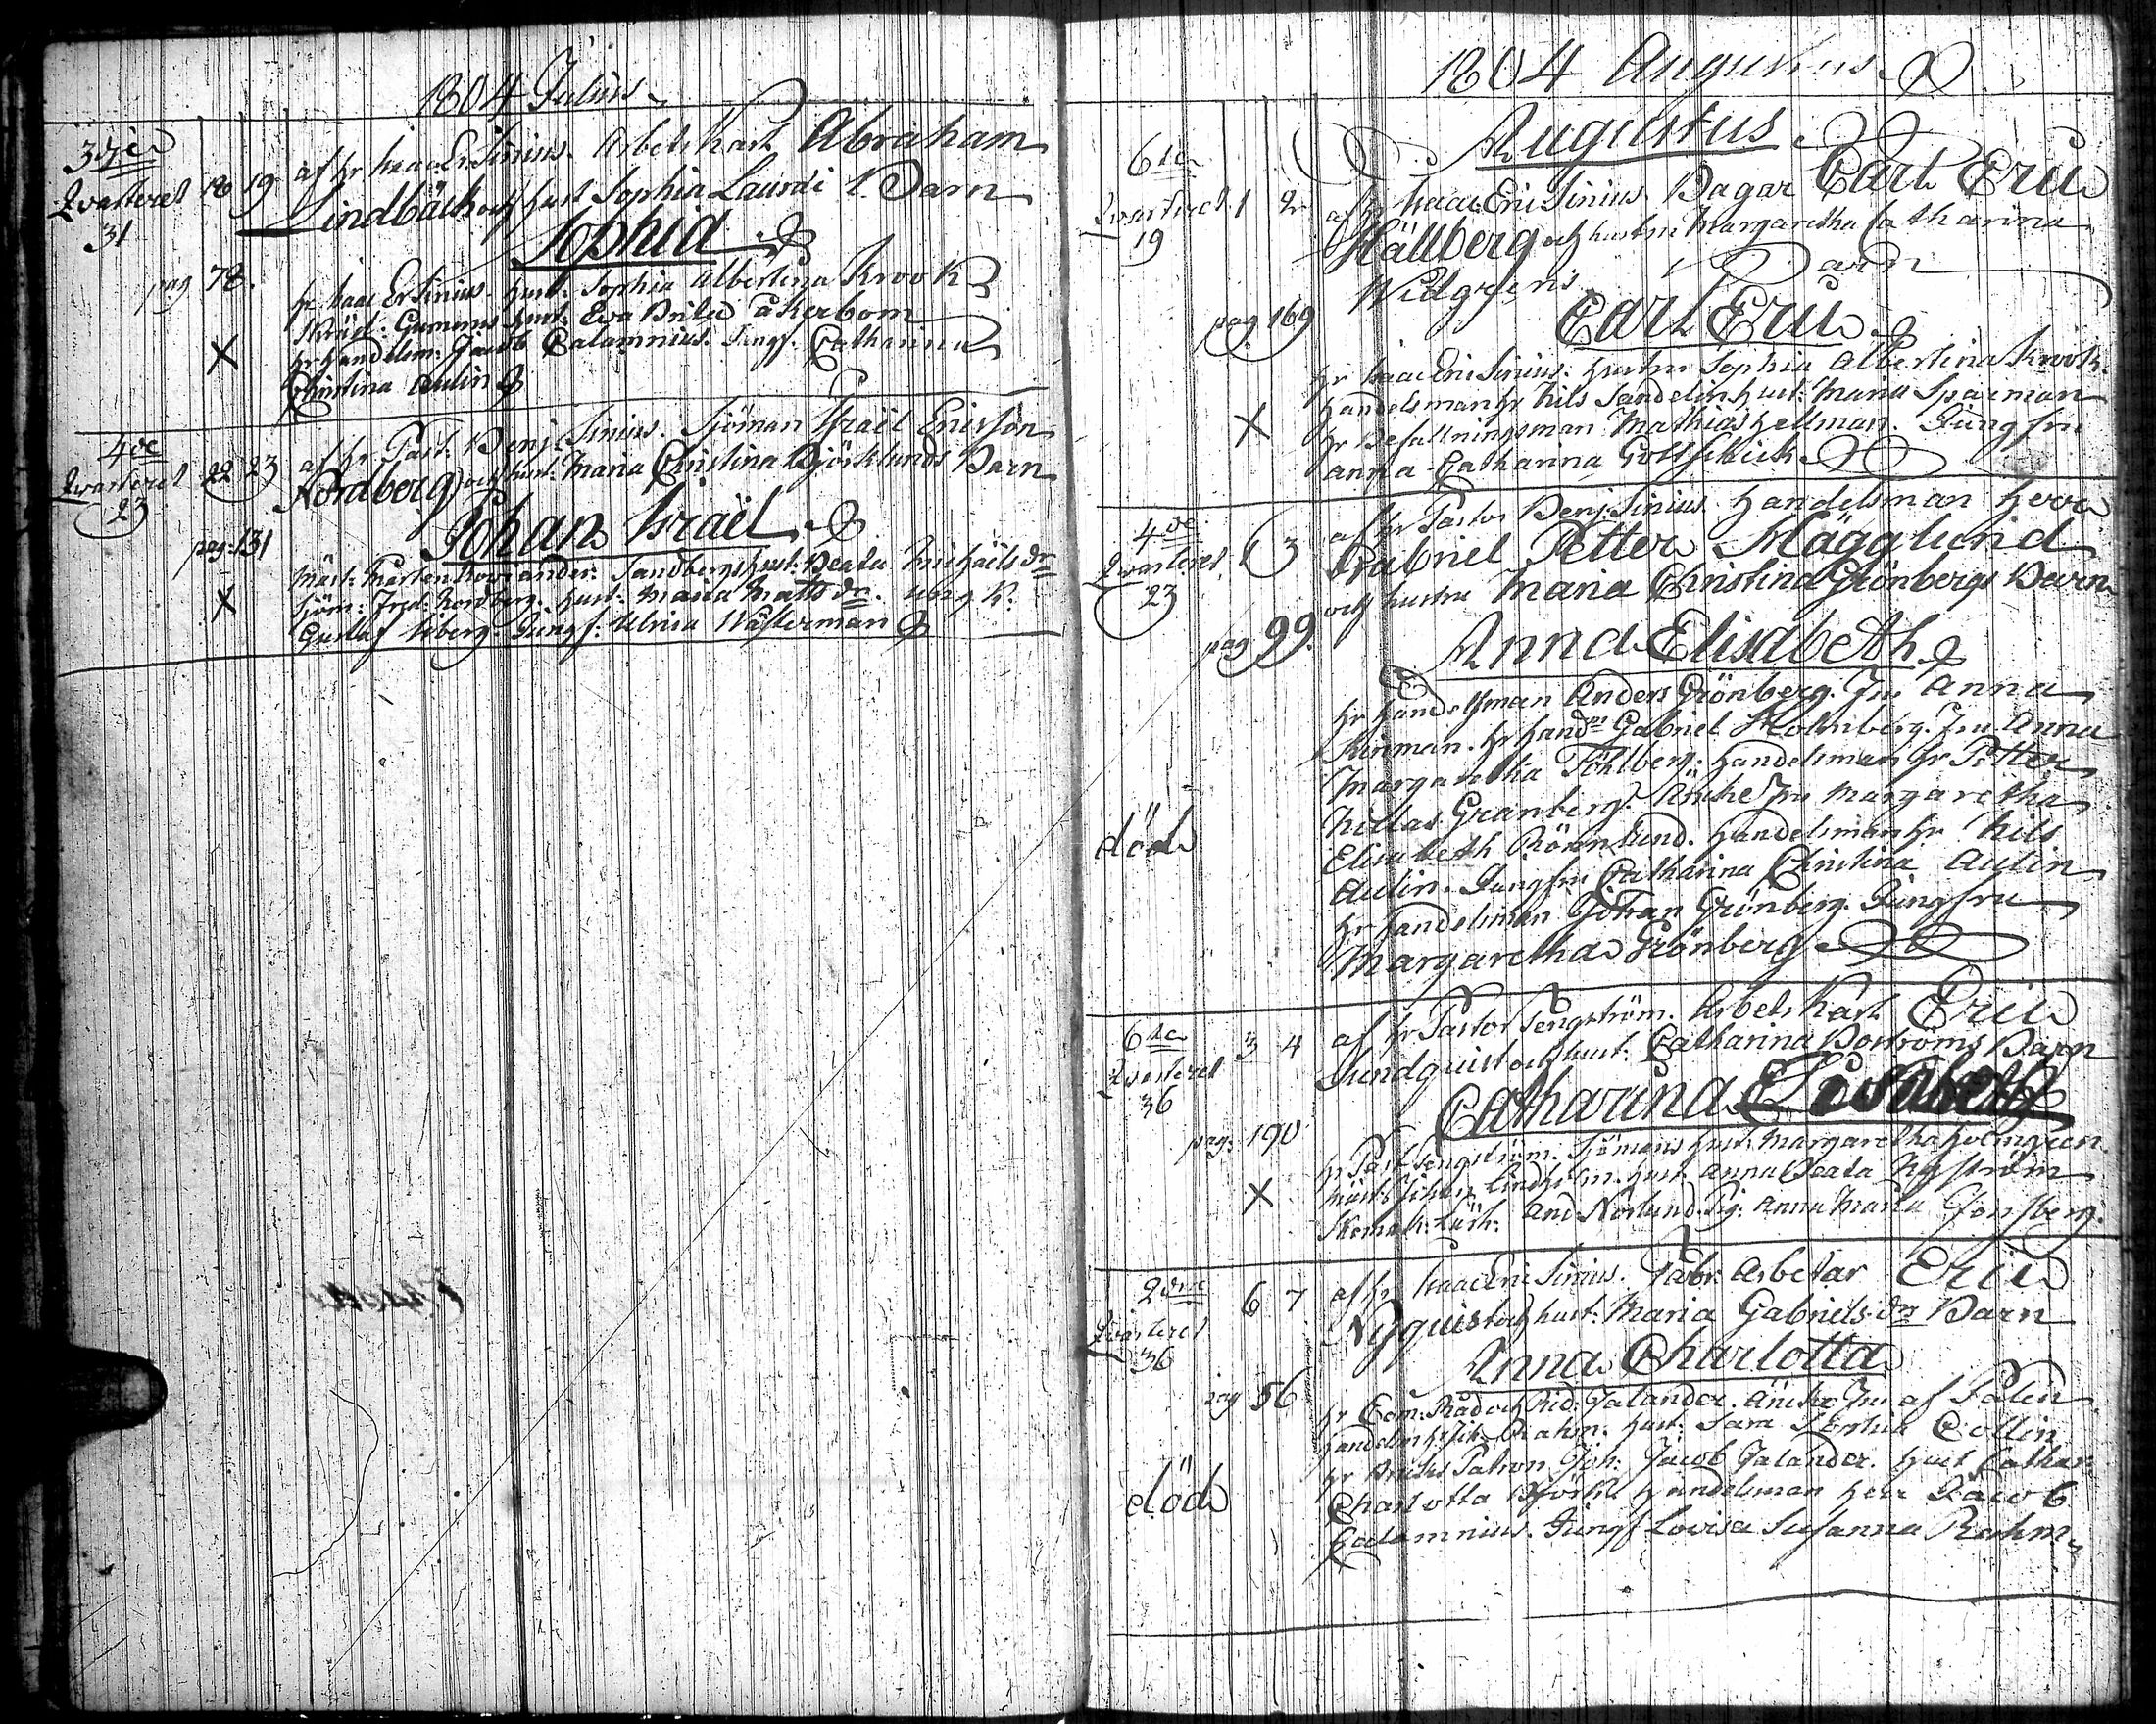 1804 Julius
3dje
Qvarteret
31
18 19
pag 78.
X
af hr Isaac Er Sinius. Arbets Karl Abraham
Lindbäck och hust Sophia Laurdi t. Barn
Sophia
hr Isaac Er Sinius. hust: Sophia Albertina Krook
Skräd: Gummerus hust: Eva Brita Åkerbom
hr handelsm: Jacob Calamnius. Jungf. Catharina
Christina Aulin
4de
Qvarteret
23
22 23
pag: 131
X
af hr Past: Benj: Sinius. Sjöman Israël Ericsson
Nordberg och hust: Maria Christina Björklunds Barn
Johan Israël
Mäst: Mårten Sandbergs hust: Beata Michaëls dr
Sjöm: Fred: Nordberg. hust: Maria Matts dr. ung K:
Gustaf Wiberg. Jungf: Ulrica Wästerman
1804 Augustus
Augustus
6te
Qvarteret
19
1 2
pag. 169
X
af hr Isaac Eric Sinius. Bagar Carl Eric
Hällberg och hustru Margaretha Catharina
Widgrens Barn
Carl Eric
hr Isaac Eric Sinius. hustru Sophia Albertina Krook.
handelsman hr Nils Sandelin hust: Maria Sparman
hr Befallningsman Mathias Hellman. Jungfru
Anna Catharina Gottschick
4de
Qvarteret
23
1 3
pag 99.
död
af hr Pastor Benj. Sinius handelsman herr
Gabriel Petter Hägglund
och hustru Maria Christina Grönbergs Barn
Anna Elisabeth
hr handelsman Anders Grönberg. Fru Anna
Kinman. hr hand:m Gabriel Holmberg. Fru Anna
Margaretha Pohlberg. handelsman hr Petter
Niclas Granberg. Änke Fru Margaretha
Elisabeth Rönnlund. handelsman hr Nils
Aulin. Jungfru Catharina Christina Aulin
hr handelsman Johan Grönberg. Jungfru
Margaretha Grönberg
6te
Qvarteret
36
3 4
pag: 190
X
af hr Pastor Tengström. Arbets Karl Eric
Sundquist och hust: Catharina Boströms Barn
Catharina Elisabeth
hr Past Tengström. Sjömans hust: Margaretha Holmgren
Mäst: Johan Lindholm. hust: Anna Beata Nyström
Skomak: Lärl: And Norlund. Pig: Anna Maria Forsberg.
2dre
Qvarteret
36
6 7
pag 56
död
af hr Isaac Eric Sinius. Fabr: Arbetar Eric
Nyquist och hust: Maria Gabriels dr Barn
Anna Charlotta
hr Com: Råd och Rid: Falander. Änke Fru af Palén
handelsm hr Joh: Rahm. hust: Sara Sophia Collin
hr Bruks Patron Joh: Jacob Falander. hust Cathar:
Charlotta Björk. handelsman herr Jacob
Calamnius. Jungf Lovisa Susanna Rahm